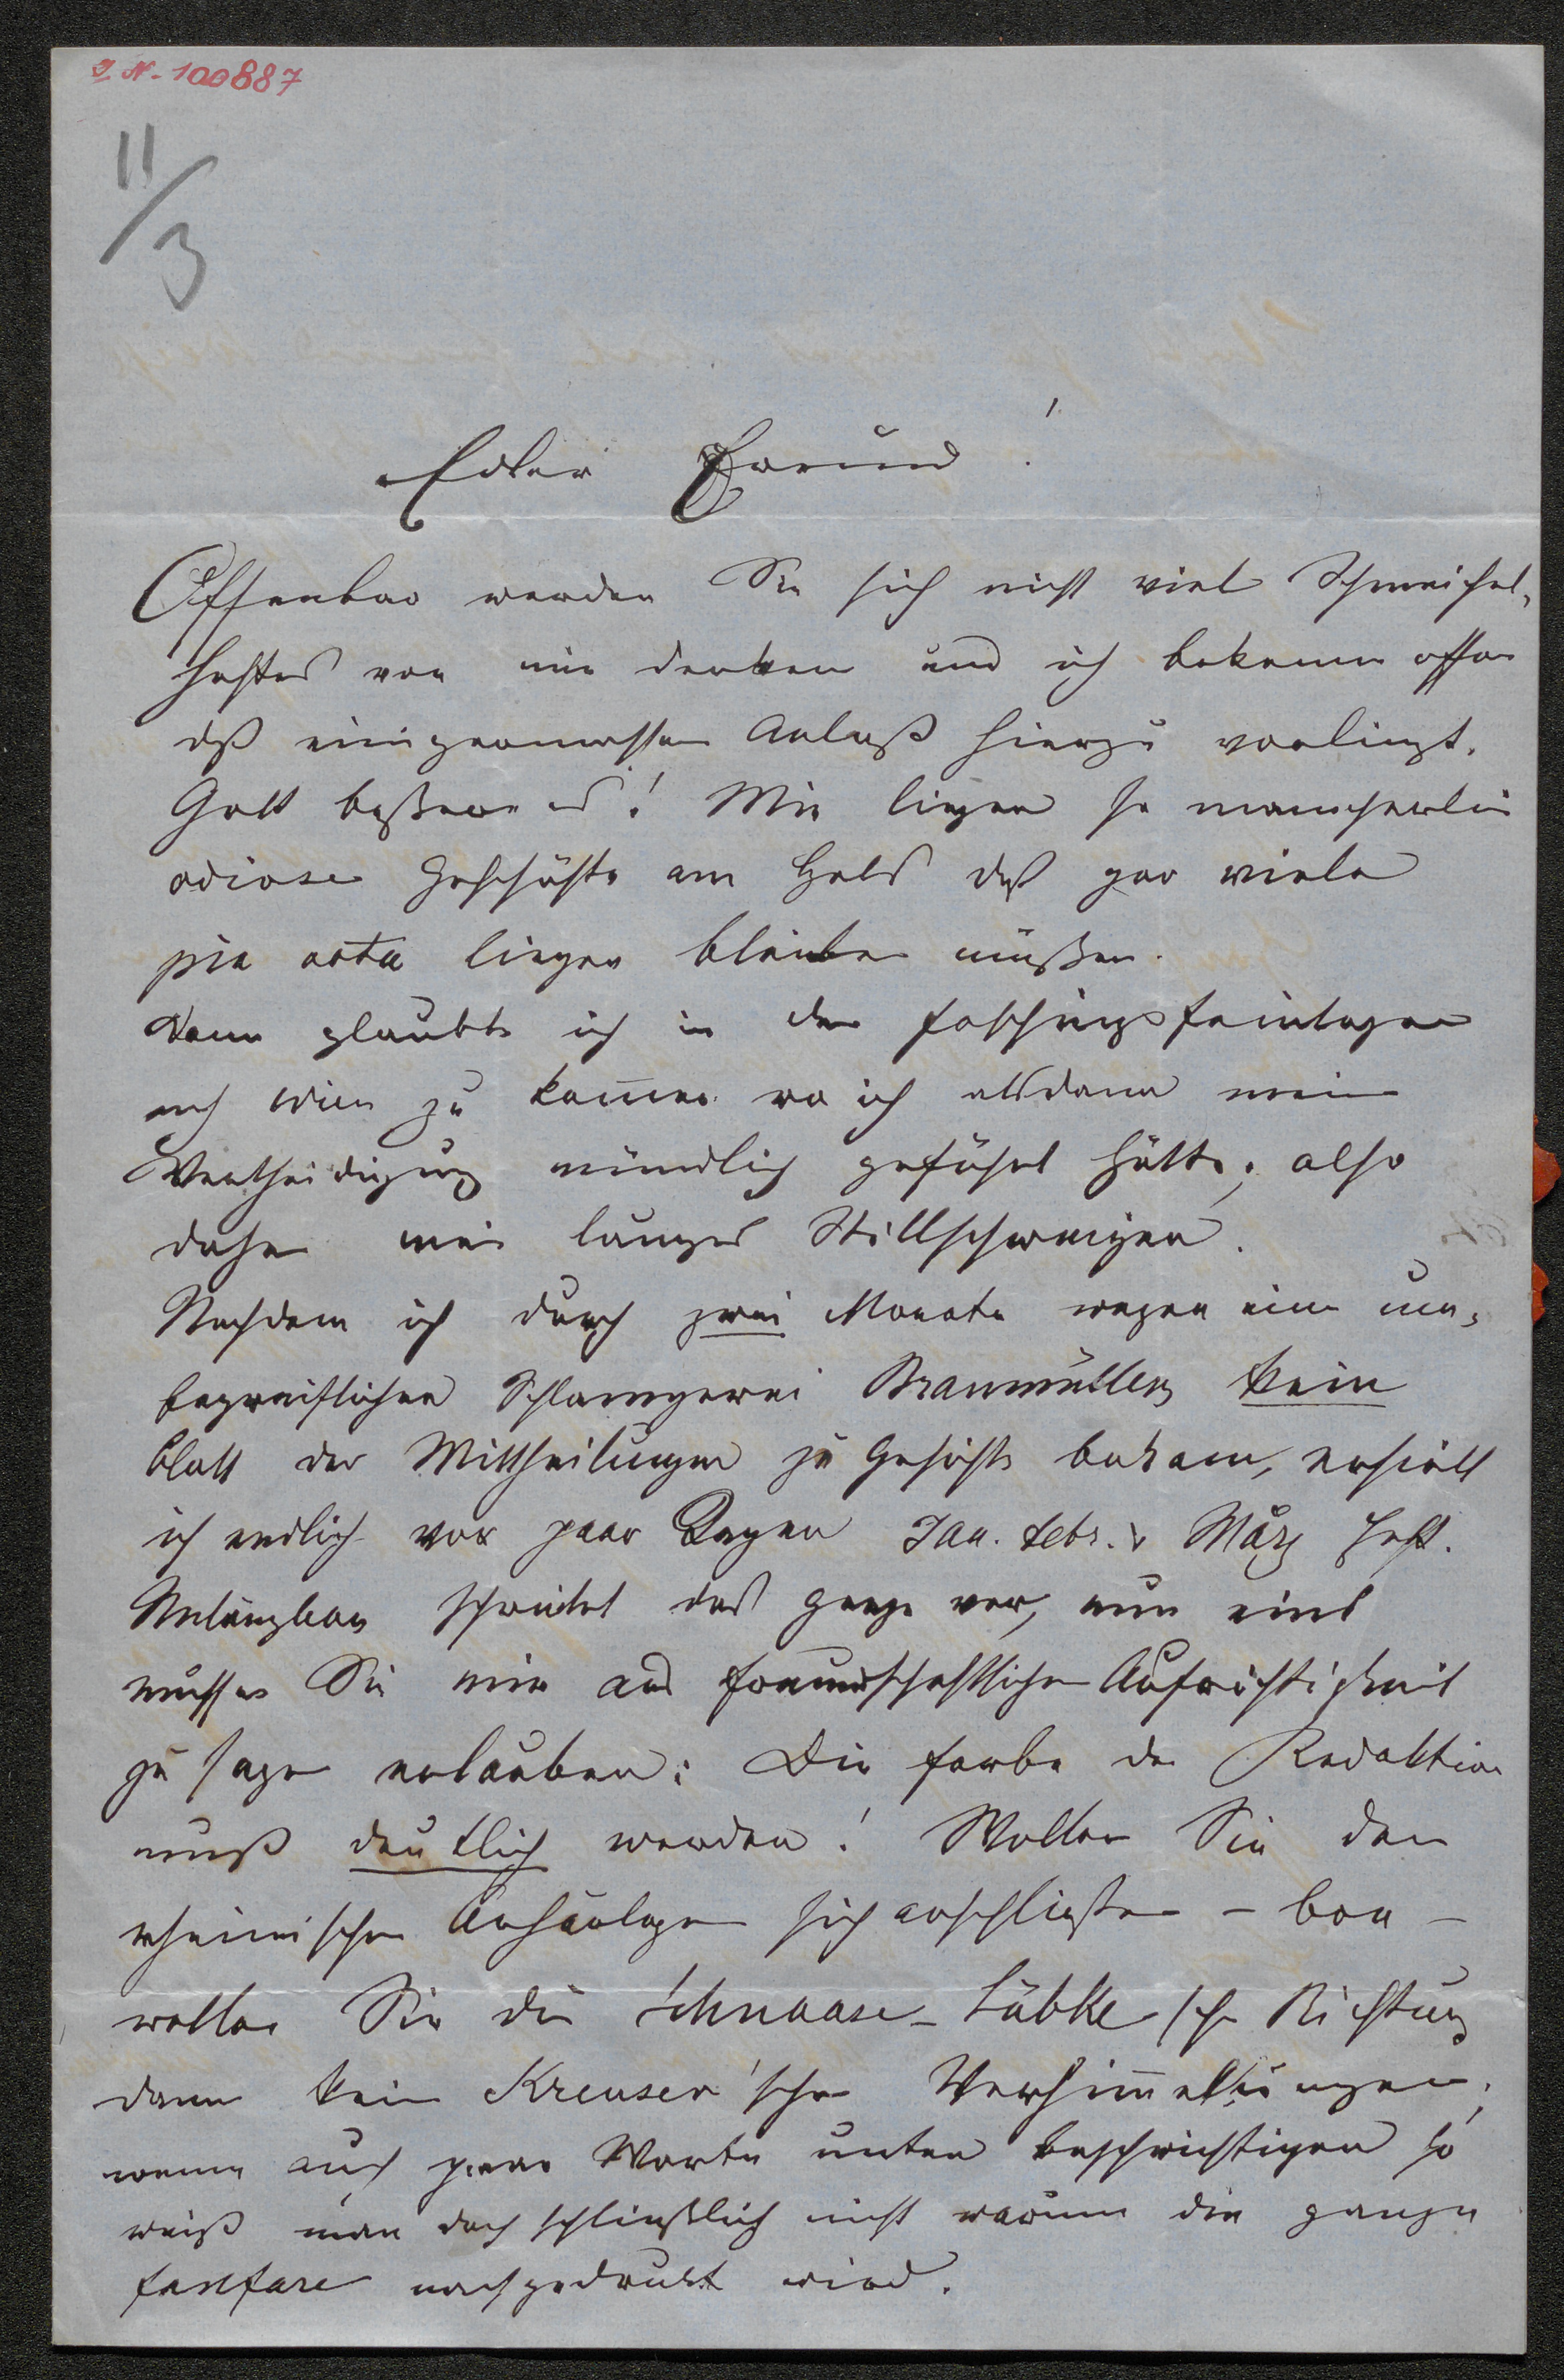 I. N. 100887
11/3
Edler Freund!
Offenbar werden Sie sich nicht viel Schmeichel„
haftes von mir denken und ich bekenne offen
daß einigermassen Anlaß hierzu vorliegt.
Gott beßere es! Mir liegen so mancherlei
odiose Geschäfte am Hals daß gar viele
pia acta liegen bleiben müßen.
Dann glaubte ich in den Faschingsfeiertagen
nach Wien zu kom̄en wo ich alsdann meine
Vertheidigung mündlich geführt hätte; also
daher mein langes Stillschweigen.
Nachdem ich durch zwei Monate wegen einer un„
begreiflichen Schlamperei Braumüllers kein
Blatt der Mittheilungen zu Gesicht bekam, erhielt
ich endlich vor paar Tagen Jän. Febr. & März Heft.
Unläugbar schreitet das Ganze vor, nur eins
müssen Sie mir aus freundschaftlicher Aufrichtigkeit
zu sagen erlauben: Die Farbe der Redaktion
muß deutlich werden! Wollen Sie den
rheinischen Archäologen sich anschließen – bon –
wollen Sie die Schnaase-Lübke'sche Richtung
dann kein Kreuser'sche Verhim̄elungen,
wenn auch paar Worte unten beschwichtigen so
weiß man doch schließlich nicht warum die ganze
Fanfare nachgedruckt wird.